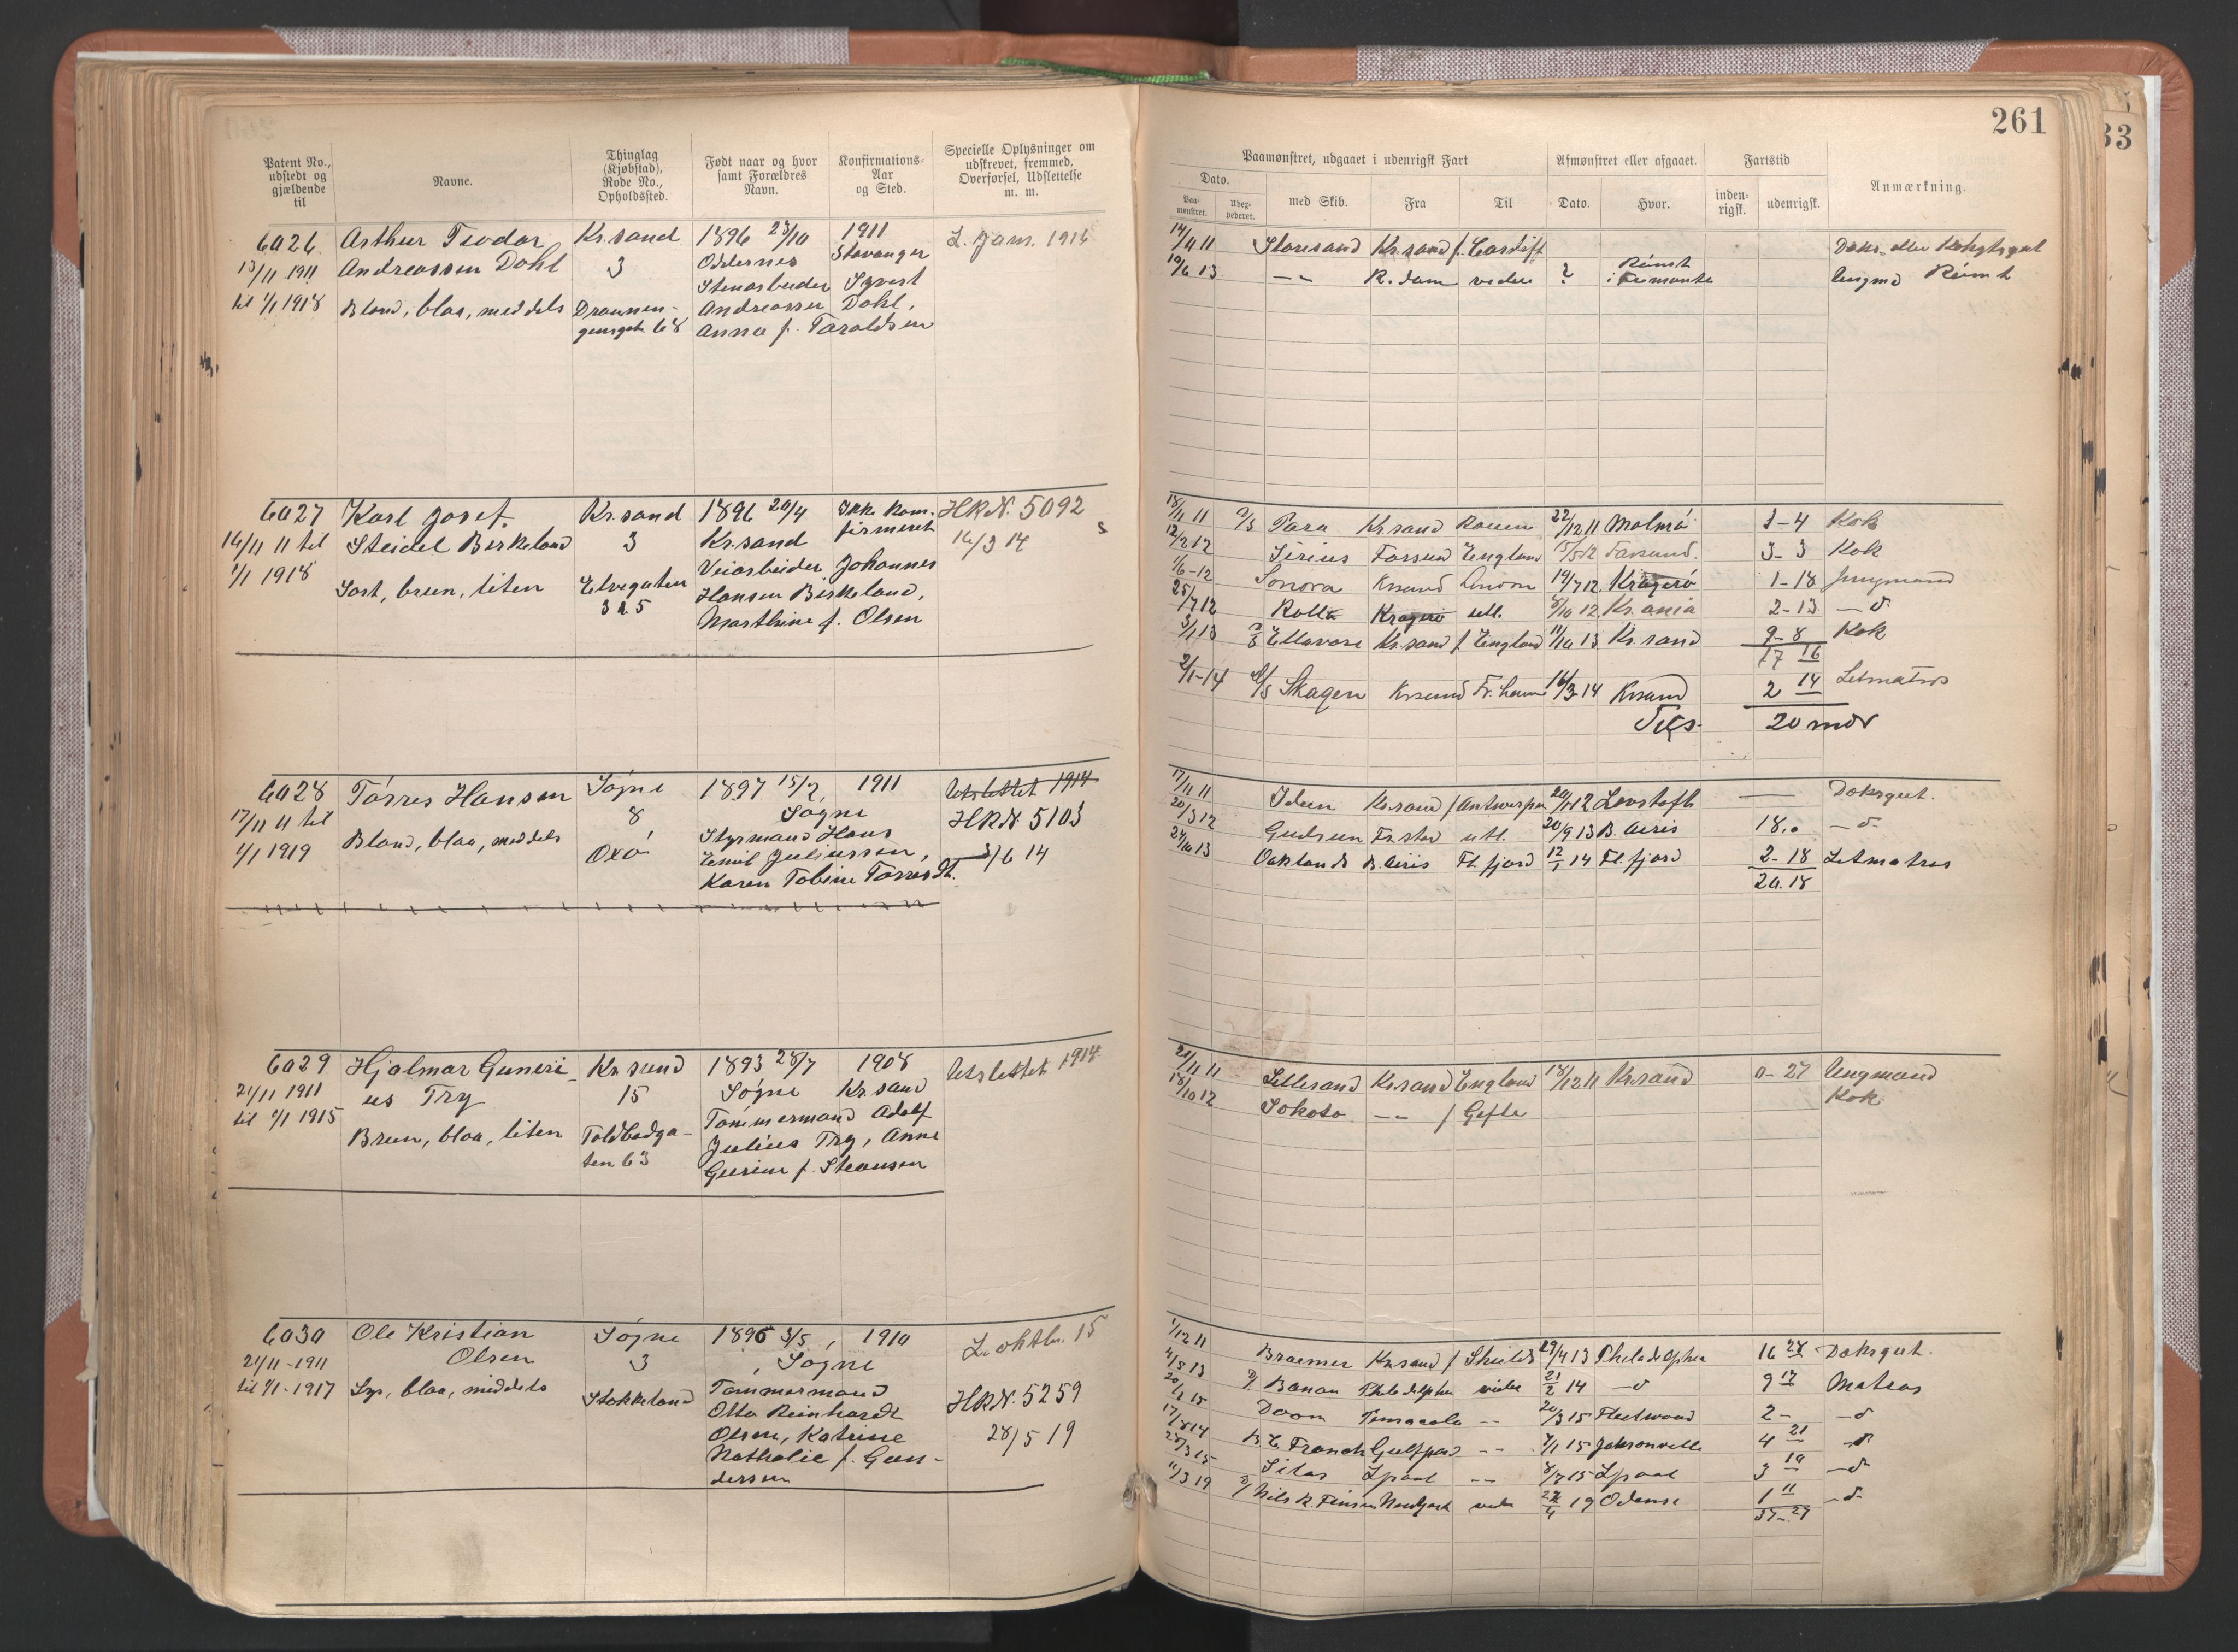 261
33
Patent No., udstedt og gjældende til
Navne.
Thinglag (Kjøbstad), Rode No., Opholdssted.
Født naar og hvor samt Forældres Navn.
Konfirmations-Aar og Sted.
Specielle Oplysninger om udskrevet, fremmed, Overførsel, Udslettelse m. m.
Paamønstret, udgaaet i udenrigsk Fart
Afmønstret eller afgaaet.
Fartstid
Anmærkning.
Dato.
Paa-mønstret.
Udex-pederet.
med Skib.
Fra
Til
Dato.
Hvor.
inden-rigsk.
udenrigsk.
6026 Arthur Teodor Kr.sand 1896 23/10 1911 L. Jan. 1916
13/11 1911 Andreassen Dahl 3 Oddernes Stavanger
Stenarbeider Syvert
til 1/1 1918 Blond, blaa, middels Dronnen- Andreassen Dahl,
gensgt. 68 Anna f. Taraldsen
14/11 11 Storesand Kr.sand f. Cardiff
19/6 13 -"- R.dam videre ? Rømt
6027 Karl Josef. Kr.sand 1896 20/4 Ikke kon- HRN. 5092
firmeret
16/11 11 til Steidel Birkeland 3 Kr.sand 16/3 14
1/1 1918 Veiarbeider Johannes
Sort, brun, liten Elvegaten Hansen Birkeland,
Marthine f. Olsen
18/11 11 Para Kr.sand Rouen 22/12 11 Malmø 1-4 Kok
12/2 12 Sirius Farsund England 15/5 12 Farsund. 3-3 Kok
1/6-12 Sonora Krsand 19/7 12 Kragerø 1-18 Jungmand
25/7 12 Rolla Kragerø utl. 8/10 12 Kr.ania 2-13 - d.
3/1 13 Ellavore Kr.sand f. England 11/10 13 Kr.sand 9-8 Kok
17 16
2/1-14 Skagen Krsand Fr.havn 16/3 14 Krsand 2 14 Letmatros
Tils. 20 mdr
6028 Tørres Hansen Søgne 1897 15/2, 1911 Utslettet 1914
17/11 11 til 8 Søgne HRN. 5103
1/1 1919 Blond, blaa, middels Oxø Styrmand Hans
Emil Juliussen, 3/6 14
Karen Tobine Tørresdt.
17/11 11 Iduen Kr.sand f. Antwerpen 20/1 12 Lovstoft — Dæksgut.
20/3 12 Gudrun Fr.stad utl. 20/9 13 B. Aeris 18.0 - d.
24/10 13 Oaklands B. Airis Fl.fjord 12/1 14 Fl.fjord 2-18 Letmatros
20.18
6029 Hjalmar Guneri- Kr.sand 1893 28/7 1908 Utslettet 1914
21/11 1911 us Try 15 Søgne Kr.sand
til 1/1 1915 Tømmermand Adolf
Brun, blaa, liten Toldbodga- Julius Try, Anne
ten 63 Gurine f. Steansen
21/11 11 Lillesand Kr.sand England 18/12 11 Kr.sand 0-27 Ungmand
18/10 12 Sokoto -"- f. Gefle Kok
6030 Ole Kristian Søgne 1895 3/5, 1910 L. oktbr. 15
21/11-1911 Olsen 3 Søgne
til 1/1-1917 Lys, blaa, middels Stokkeland Tømmermand HRN. 5259
Otto Reinhardt
Olsen, Katrine 28/5 19
Nathalie f. Gun-
dersen
1/12 11 Braemer Kr.sand f. Shields 29/4 13 Philadelphia 16 28 Dæksgut.
Banan Philadelphia vidre 21/2 14 - d 9 17 Matros
Doon Pensacola -"- 20/3 15 Fleetwood 2- - d
17/8 14 Gulfport -"- 7/1 15 Jaksonville 4 21 - d
28/3 15 Silas Lpool -"- 8/7 15 Lpool 3 10 - d
11/3 19 Nils R. Finsen vidr 22/4 19 Odense 1 11 - d.
37-27